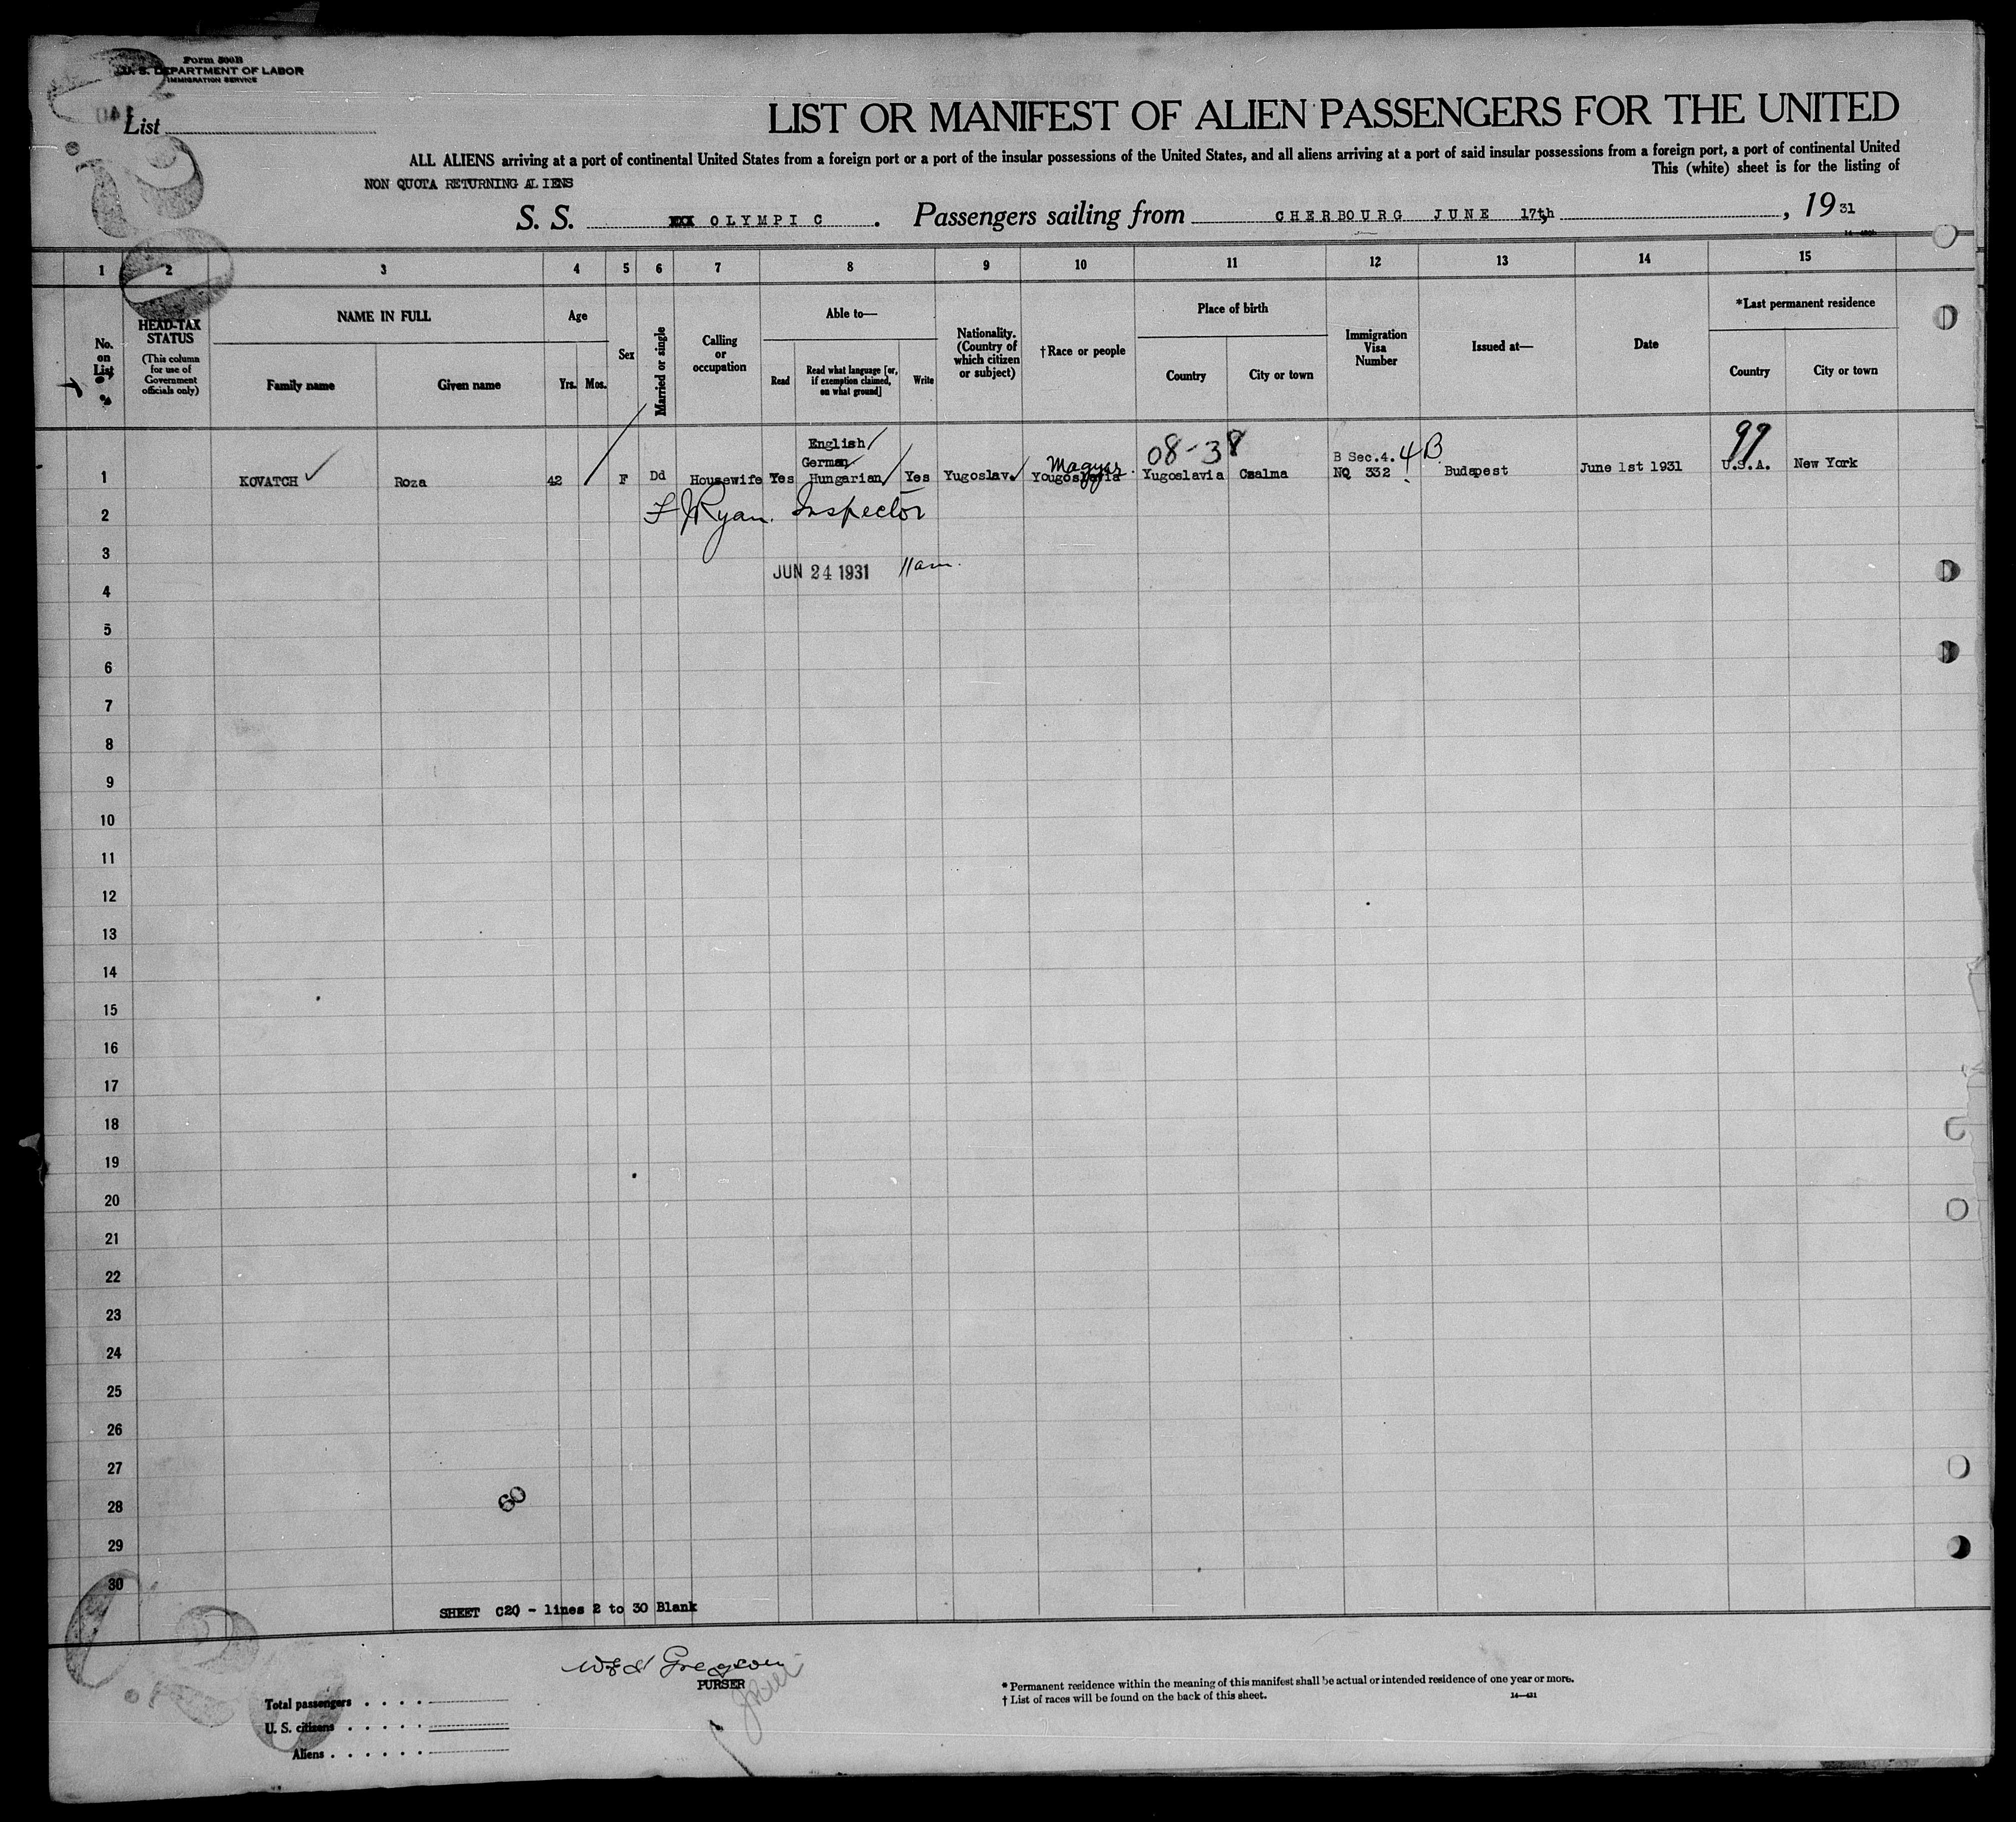 Form 500B
U. S. DEPARTMENT OF LABOR
IMMIGRATION SERVICE
List
LIST OR MANIFEST OF ALIEN PASSENGERS FOR THE UNITED
ALL ALIENS arriving at a port of continental United States from a foreign port or a port of the insular possessions of the United States, and all aliens arriving at a port of said insular possessions from a foreign port, a port of continental United
This (white) sheet is for the listing of
NON QUOTA RETURNING ALIENS
S. S. XXX OLYMPIC. Passengers sailing from CHERBOURG JUNE 17th, 1931
1 2 3 4 5 6 7 8 9 10 11 12 13 14 15
No. on List
HEAD-TAX STATUS
(This column for use of Government officials only)
NAME IN FULL
Family name
Given name
Age
Yrs. Mos.
Sex
Married or single
Calling or occupation
Able to—
Read
Read what language [or, if exemption claimed, on what ground]
Write
Nationality. (Country of which citizen or subject)
†Race or people
Place of birth
Country
City or town
Immigration Visa Number
Issued at—
Date
*Last permanent residence
Country
City or town
English
German
Magyar
08-38
B Sec.4. 4B
99
1 KOVATCH Roza 42 F Dd Housewife Yes Hungarian Yes Yugoslav. Yougoslavia Yugoslavia Czalma NQ 332 Budapest June 1st 1931 U.S.A. New York
2 F J Ryan. Inspector
3
JUN 24 1931 11am.
4
5
6
7
8
9
10
11
12
13
14
15
16
17
18
19
20
21
22
23
24
25
26
27
28
60
29
30
SHEET C20 - lines 2 to 30 Blank
Gregson
PURSER
Total passengers
U. S. citizens
Aliens
* Permanent residence within the meaning of this manifest shall be actual or intended residence of one year or more.
† List of races will be found on the back of this sheet.
14—431